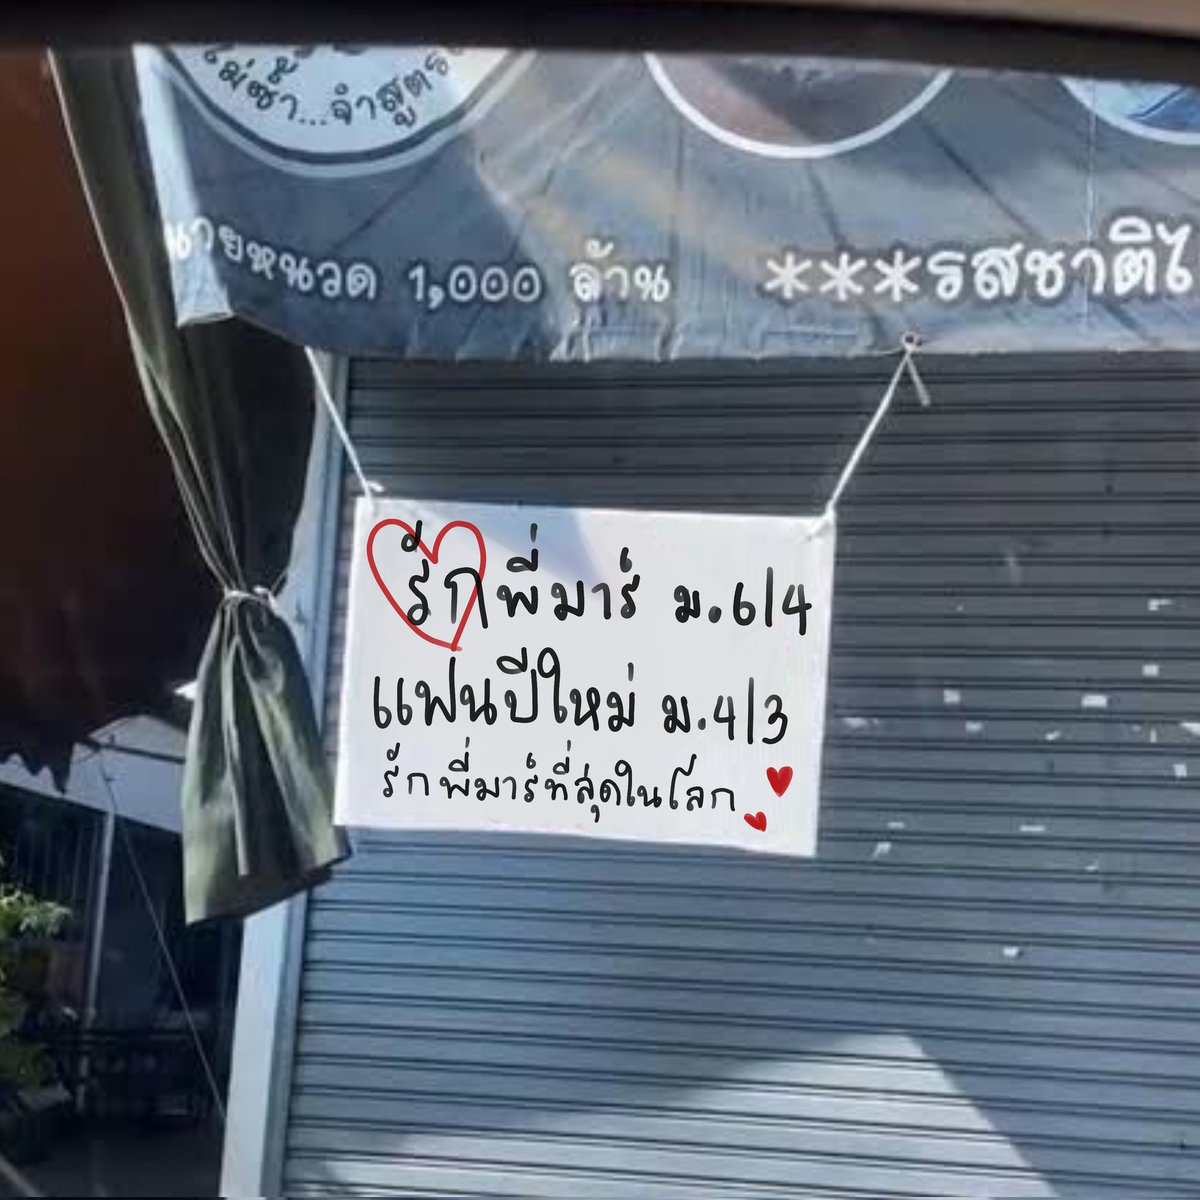 ไม่ซ้ำ...จำสูตร
นายหนวด 1,000 ล้าน ***รสชาติ
รักพี่มาร์ ม.6/4
แฟนปีใหม่ ม.4/3
รักพี่มาร์ที่สุดในโลก